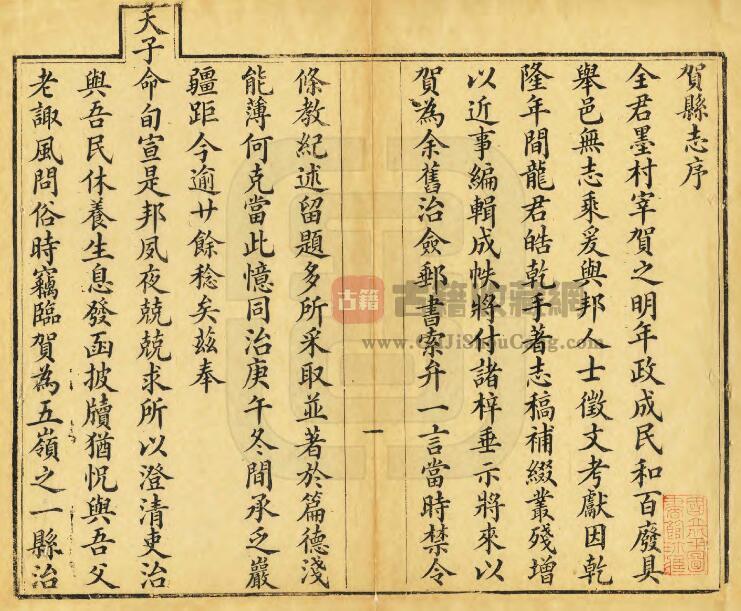 賀縣志序
全君墨村宰賀之明年政成民和百廢具
舉邑無志乘爰與邦人士徵文考獻因乾
隆年間龍君皓乾手著志稿補綴叢殘增
以近事編輯成帙將付諸梓垂示將來以
賀為余舊治僉郵書索弁一言當時禁令
一
條教紀述留題多所采取並著於篇德淺
能薄何克當此憶同治庚午冬間承乏巖
疆距今逾廿餘稔矣茲奉
天子命旬宣是邦夙夜兢兢求所以澄清吏治
與吾民休養生息發函披牘猶怳與吾父
老諏風問俗時竊臨賀為五嶺之一縣治
古籍
古籍收藏網
www.GuJiShouCang.com